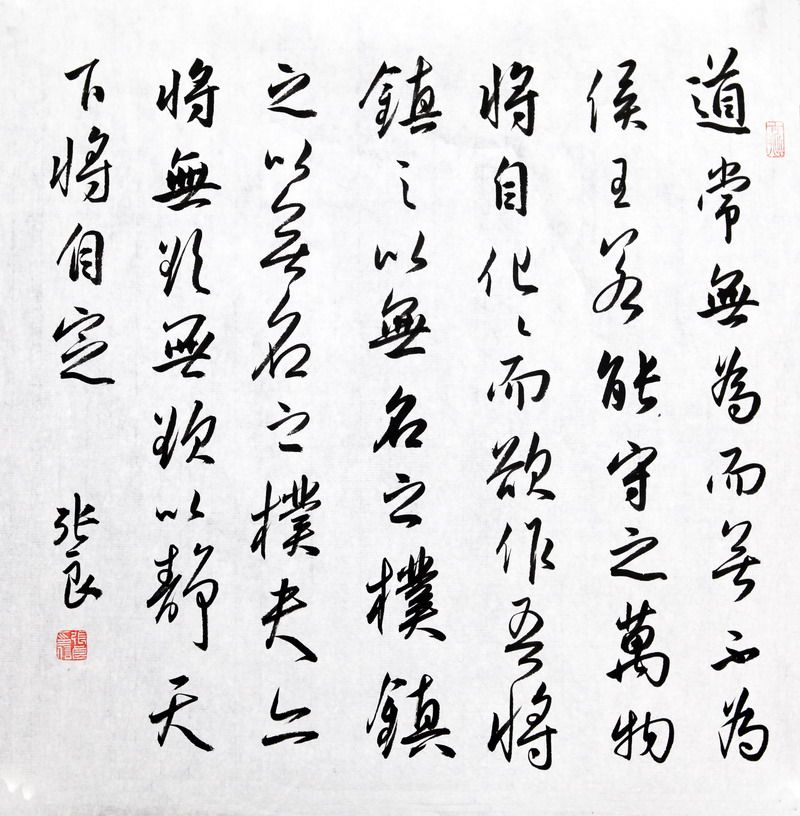 道常無為而无不為
侯王若能守之萬物
將自化〻而欲作吾將
鎮之以無名之樸鎮
之以无名之樸夫亦
將無欲無欲以靜天
下將自定
张良